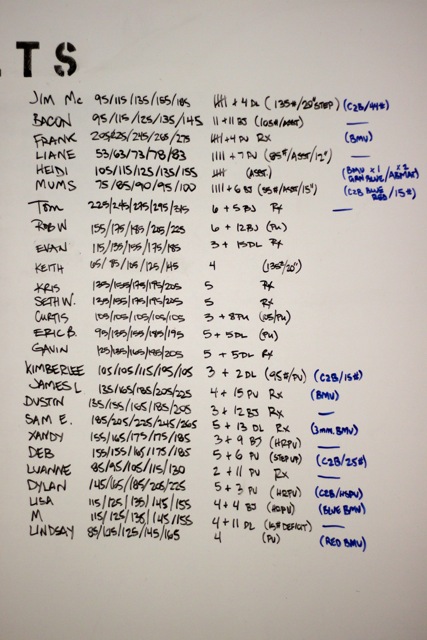 LTS
JIM Mc 95/115/135/155/185 IIII + 4 DL (135#/20"STEP) (C2B/44#)
BACON 95/115/125/135/145 11 + 11 BJ (105#/ASST) —
FRANK 205/225/245/265/275 + 4 PU RX (BMU)
LIANE 53/63/73/78/83 IIII + 7 PU (85#/ASST/12") —
HEIDI 105/115/125/135/155 (ASST.) (BMU X1 GRN BLUE/ABMAT X2
MUMS 75/85/90/95/100 IIII + 6 BJ (55#/ASST/15") (C2B BLUE RED/15#)
TOM 225/245/275/295/315 6 + 5 BJ RX —
ROB W 155/175/185/205/225 6 + 12 BJ (PU)
EVAN 115/135/155/175/185 3 + 15 DL RX
KEITH 65/85/105/125/145 4 (135#/20")
KRIS 135/155/175/195/205 5 RX
SETH W. 135/155/175/195/205 5 RX
CURTIS 105/105/105/105/105 3 + 8 PU (65/PU)
ERIC B. 95/135/155/185/195 5 + 5 DL (PU)
GAVIN 125/135/165/195/205 5 + 5 DL RX
KIMBERLEE 105/105/115/195/105 3 + 2 DL (95#/PU) (C2B/15#)
JAMES L. 135/165/185/205/225 4 + 15 PU RX (BMU)
DUSTIN 135/155/165/185/205 3 + 12 BJ RX —
SAM E. 185/205/225/245/265 5 + 13 DL RX (3mm. BMU)
XANDY 155/165/175/175/185 3 + 9 BJ (HRPU) —
DEB 155/155/165/175/185 5 + 6 PU (STEP UP) (C2B/25#)
LUANNE 85/95/105/115/130 2 + 11 PU RX —
DYLAN 145/165/185/205/225 5 + 3 PU (HRPU) (C2B/HSPU)
LISA 115/125/135/145/155 4 + 4 BJ (HRPU) (BLUE BMU)
M 115/125/135/145/155 4 + 11 DL (15# DEFICIT) —
LINDSAY 85/105/125/145/165 4 (PU) (RED BMU)